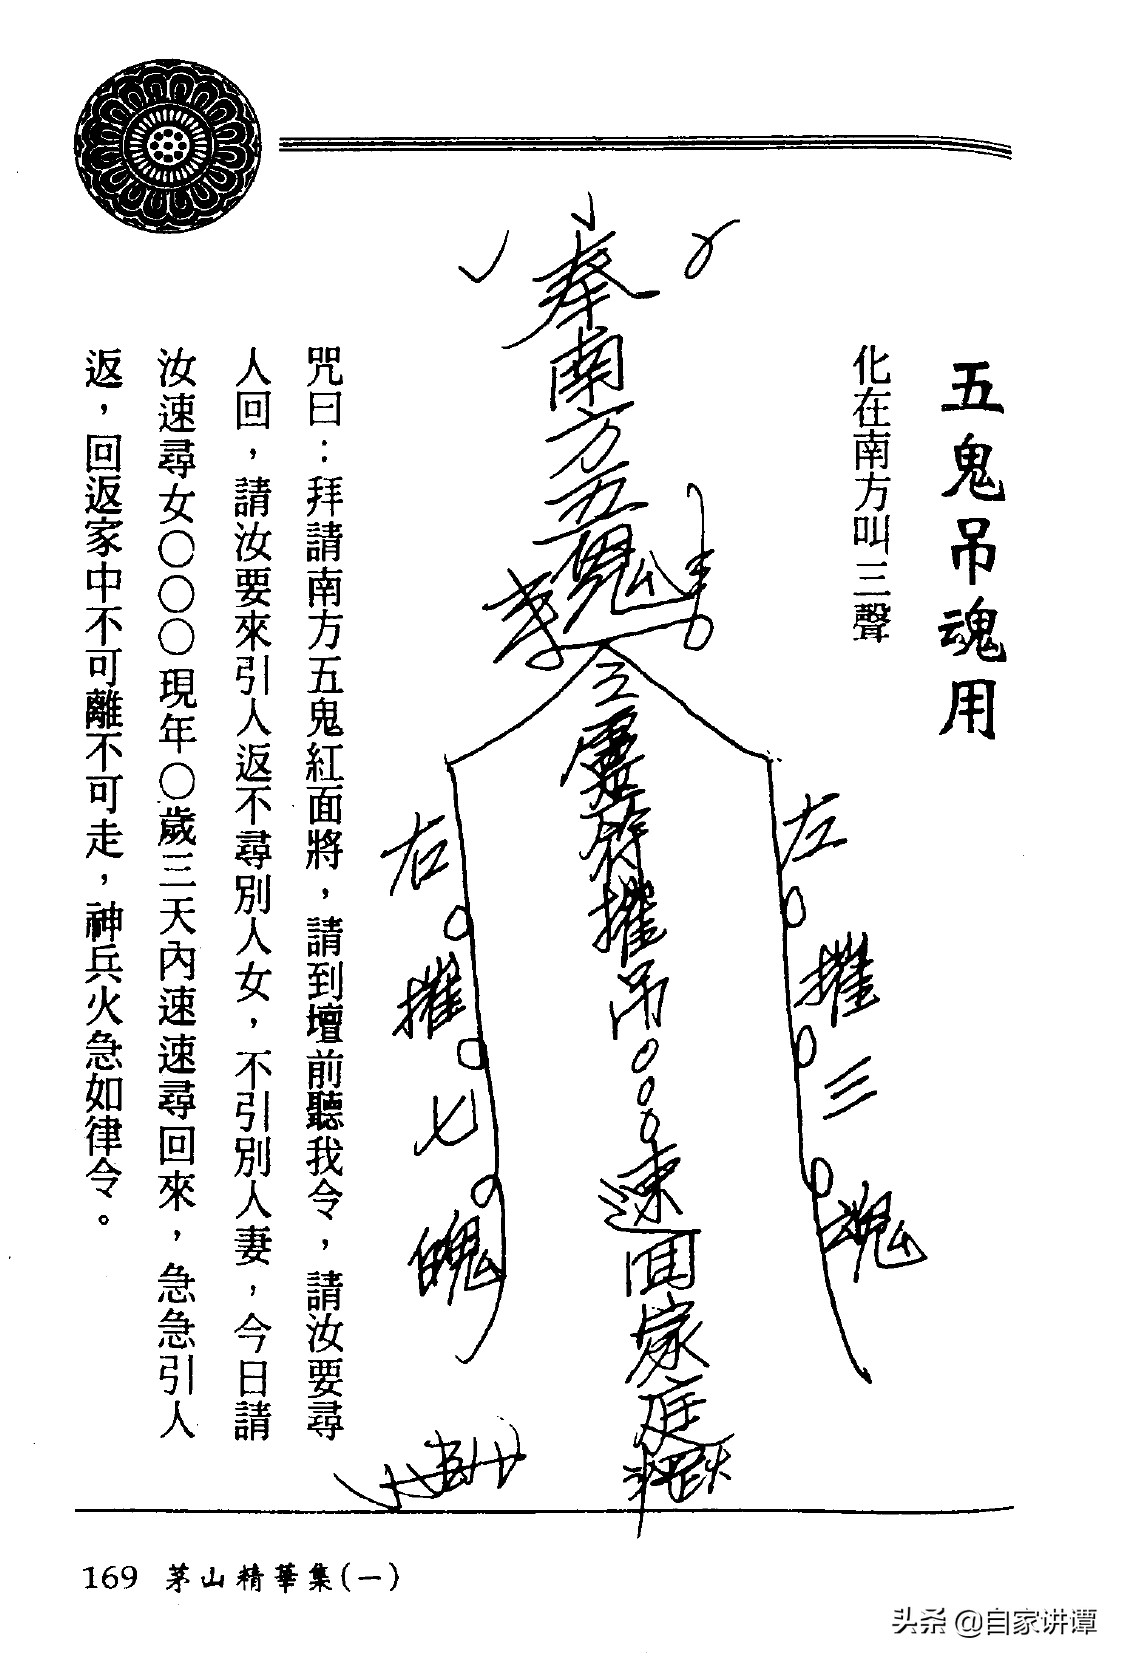 五鬼吊魂用
化在南方叫三聲
奉南方五鬼
靈符攝吊○○○速回家庭
左攝三魂
右攝七魄
咒曰：拜請南方五鬼紅面將，請到壇前聽我令，請汝要尋
人回，請汝要來引人返不尋別人女，不引別人妻，今日請
汝速尋女○○○現年○歲三天內速速尋回來，急急引人
返，回返家中不可離不可走，神兵火急如律令。
169 茅山精華集(一)
头条 @自家讲谭